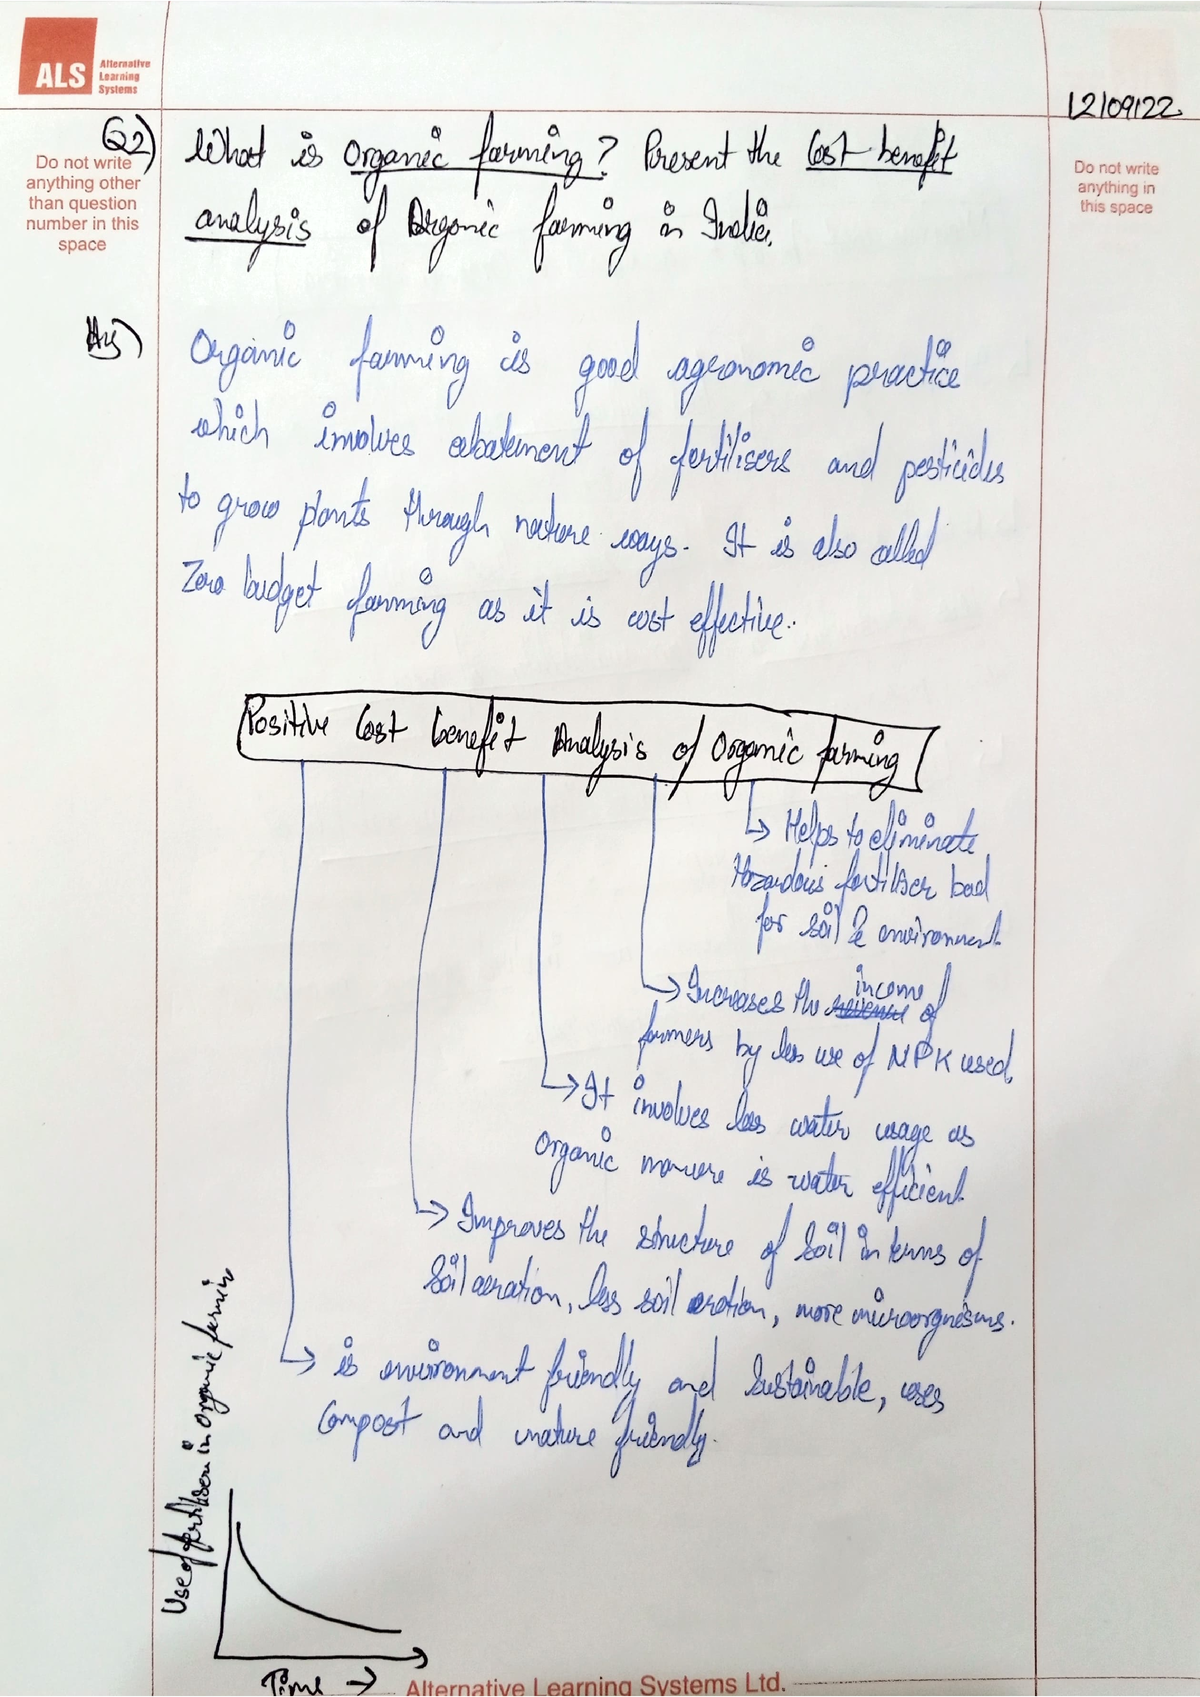 ALS Alternative
Learning
Systems
12/09/22
Q2) What is Organic farming? Present the Cost benefit
analysis of Organic farming in India.
Do not write
anything other
than question
number in this
space
Do not write
anything in
this space
Ans) Organic farming is good agronomic practice
which involves abatement of fertilisers and pesticides
to grow plants through nature ways. It is also called
Zero budget farming as it is cost effective.
Positive Cost benefit Analysis of Organic farming
→ Helps to eliminate
Hazardous fertiliser bad
for soil & environment
→ Increases the income of
farmers by less use of NPK used.
→ It involves less water usage as
Organic manure is water efficient
→ Improves the structure of Soil in terms of
Soil aeration, less soil erotion, more microorgnisms.
→ is environment friendly and Sustainable, uses
Compost and nature friendly.
Use of fertilisers in organic farmin
Time →
Alternative Learning Systems Ltd.